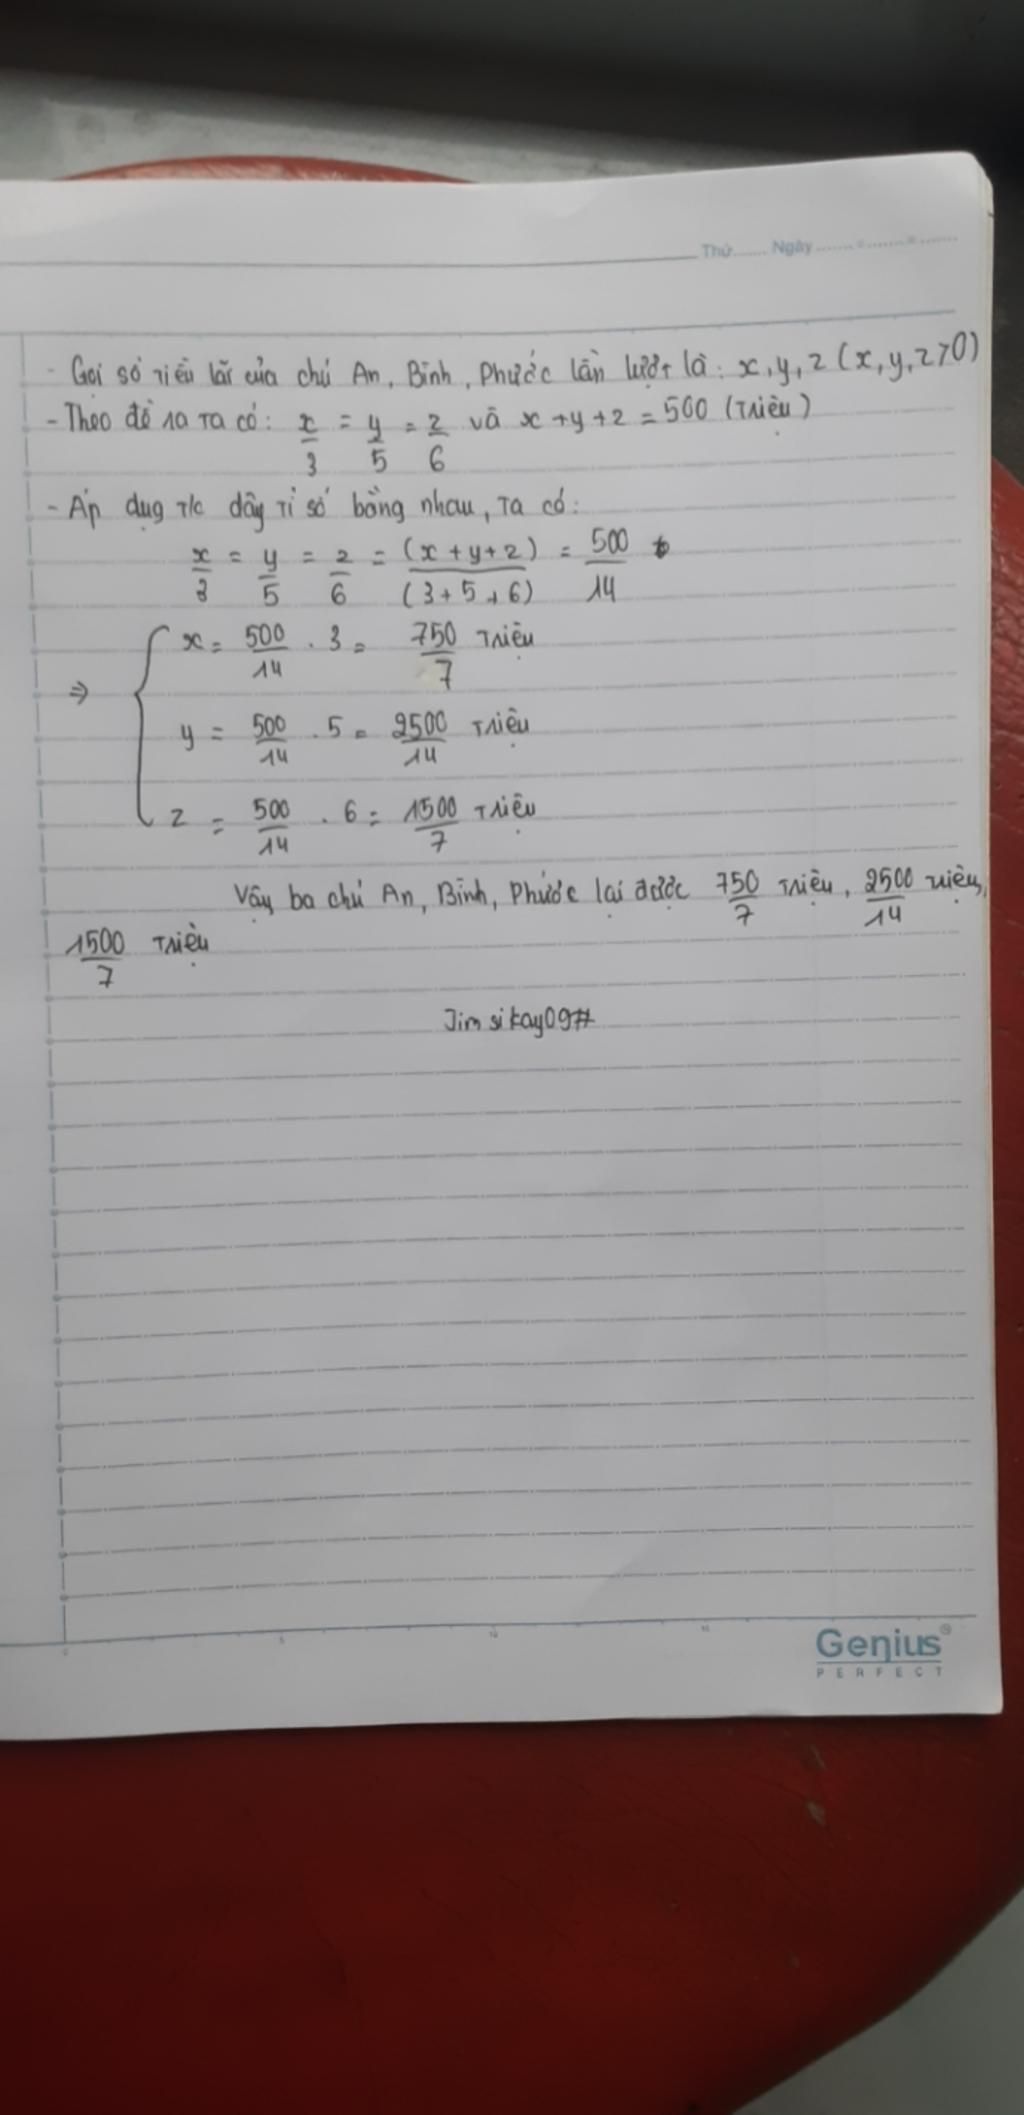 Thứ....... Ngày ....... = ....... = .......
- Gọi số tiền lãi của chú An, Bình, Phước lần lượt là: x, y, z (x, y, z > 0)
- Theo đề ra ta có: x/3 = y/5 = z/6 và x + y + z = 500 (Triệu)
- Áp dụg T/c dãy tỉ số bằng nhau, ta có:
x/3 = y/5 = z/6 = (x + y + z)/(3 + 5 + 6) = 500/14
⇒ { x = 500/14 . 3 = 750/7 Triệu
y = 500/14 . 5 = 2500/14 Triệu
z = 500/14 . 6 = 1500/7 Triệu
Vậy ba chú An, Bình, Phước lại được 750/7 Triệu, 2500/14 Triệu,
1500/7 Triệu
Jimsikay09#
Genius
PERFECT